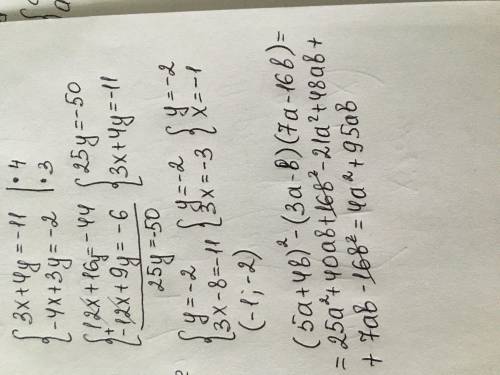 {3x+4y=-11 |·4
{-4x+3y=-2 |·3
{12x+16y=-44 {25y=-50
{+-12x+9y=-6 {3x+4y=-11
25y=-50
{y=-2 {y=-2 {y=-2
{3x-8=-11 {3x=-3 {x=-1
(-1; -2)
(5a+4b)²-(3a-b)(7a-16b)=
=25a²+40ab+16b²-21a²+48ab+
+7ab-16b²=4a²+95ab